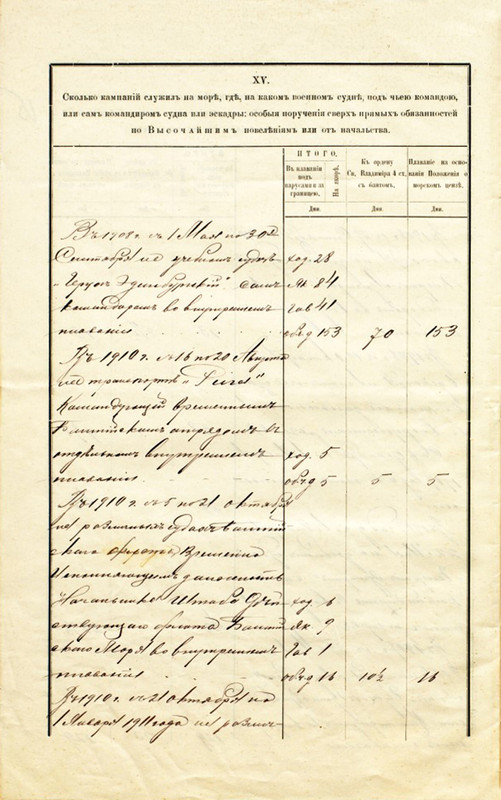 XV.
Сколько кампаній служилъ на морѣ, гдѣ, на какомъ военномъ суднѣ, подъ чьею командою,
или самъ командиромъ судна или эскадры; особыя порученія сверхъ прямыхъ обязанностей
по Высочайшимъ повелѣніямъ или отъ начальства.
ИТОГО.
Въ плаваніи подъ парусами и за границею.
На якорѣ.
Къ ордену Св. Владиміра 4 ст. съ бантомъ.
Плаваніе на основаніи Положенія о морскомъ цензѣ.
Дни. Дни. Дни.
Въ 1908 г. съ 1 Мая по 30е
Сентября на учебномъ суднѣ ход. 28
"Герцогъ Эдинбургскій" самъ Як 84
командиромъ во внутреннемъ Гав 41
плаваніи общ 153 70 153
Въ 1910 г. съ 16 по 20 Августа
на транспортѣ "Рига"
Командующій временнымъ
Балтійскимъ отрядомъ въ
отдѣльномъ внутреннемъ ход. 5
плаваніи. общ 5 5 5
Въ 1910 г. съ 5 по 21 октября
на различныхъ судахъ Балтій
скаго флота Временно
Исполняющимъ должность
Начальника Штаба Дѣй ход. 6
ствующаго флота Балтій Як. 9
скаго Моря во внутреннемъ Гав 1
плаваніи общ 16 10½ 16
Въ 1910 г. съ 21 октября по
1 Января 1911 года на различ